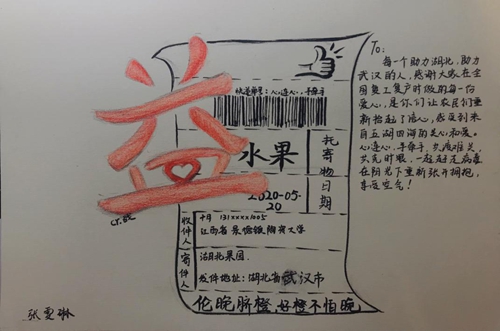 益
快递单号:心连心,手牵手
水果
托寄物日期
2020-05-20
收件人
十月 131xxxx1005
江西省景德镇陶瓷大学
寄件人
湖北果园
发件地址:湖北省武汉市
伦晚脐橙,好橙不怕晚
To:
每一个助力湖北,助力
武汉的人,感谢大家在全
国复工复产时做的每一份
爱心,是你们让农民们重
新拾起了信心,感受到来
自五湖四海的关心和爱。
心连心,手牵手,共渡难关,
共克时艰,一起赶走病毒
在阳光下重新张开拥抱,
享受空气!
张雯琳